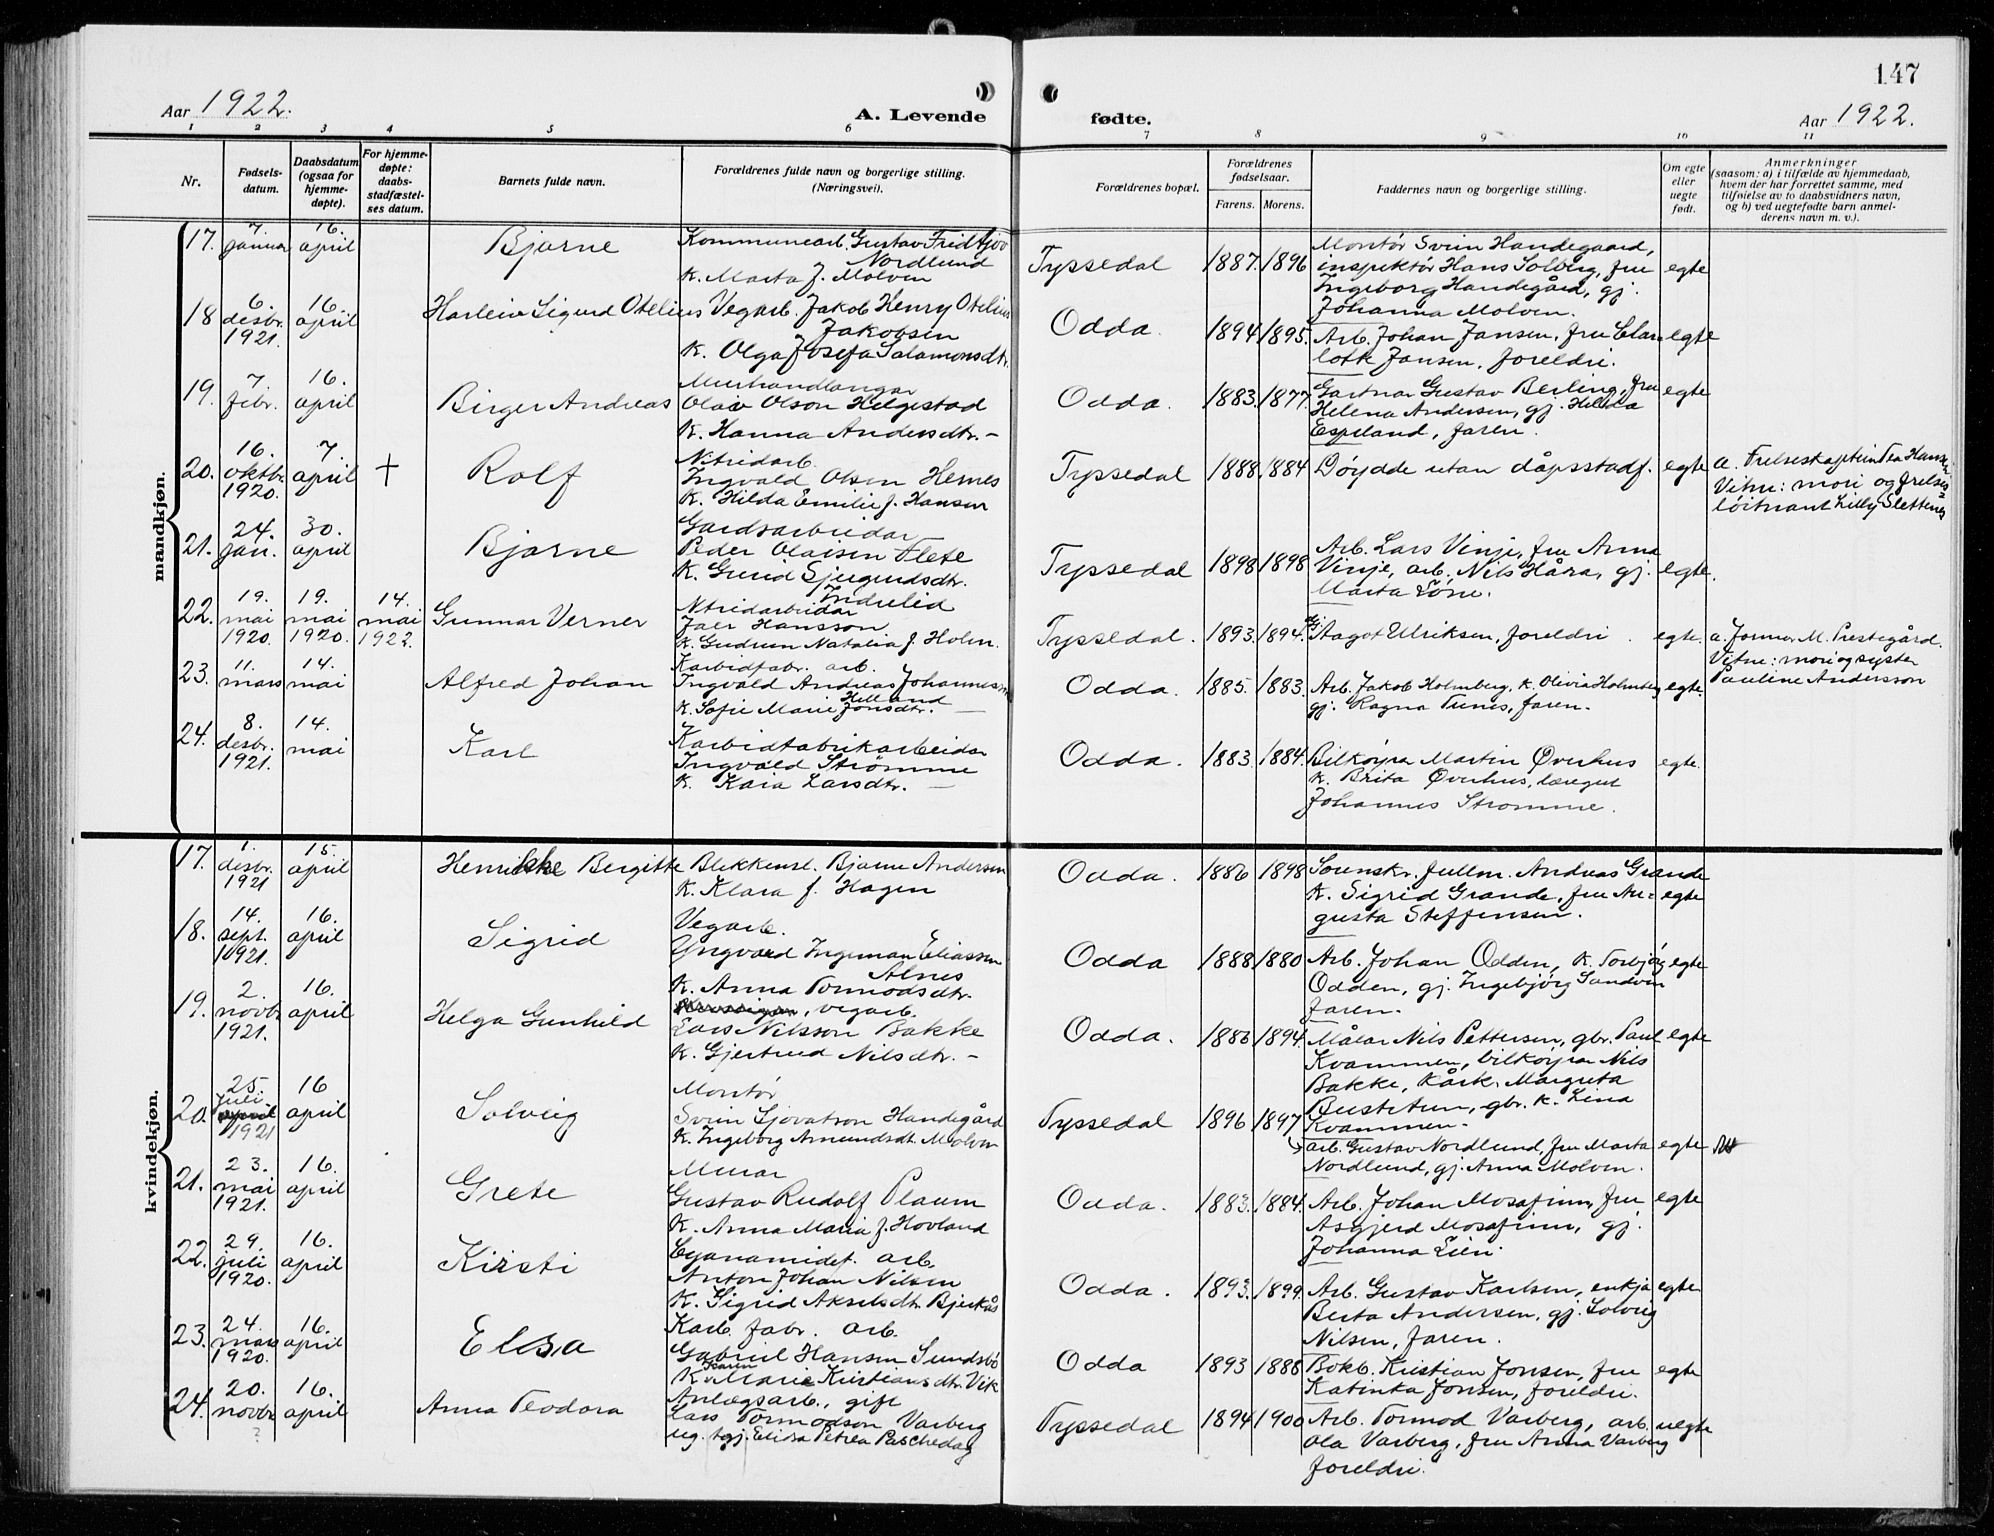 147
Aar 1922.
A. Levende
fødte.
Aar 1922.
1 2 3 4 5 6 7 8 9 10 11
Nr.
Fødsels-
datum.
Daabsdatum
(ogsaa for
hjemme-
døpte).
For hjemme-
døpte:
daabs-
stadfæstel-
ses datum.
Barnets fulde navn.
Forældrenes fulde navn og borgerlige stilling.
(Næringsvei).
Forældrenes bopæl.
Forældrenes
fødselsaar.
Farens. Morens.
Faddernes navn og borgerlige stilling.
Om egte
eller
uegte
født.
Anmerkninger
(saasom: a) i tilfælde av hjemmedaab,
hvem der har forrettet samme, med
tilføielse av to daabsvidners navn,
og b) ved uegtefødte barn anmel-
derens navn m. v.).
mandkjøn.
17.
7.
januar
16.
april
Bjarne
Kommunearb. Gustav Fridtjov
Nordlund
K. Marta f. Molven
Tyssedal
1887. 1896
Montör Svein Handegaard,
inspektör Hans Solberg, fru
Ingeborg Handegård, gj.
Johanna Molven.
egte
18
6.
desbr.
1921.
16.
april
Harleiv Sigurd Otelius
Vegarb. Jakob Henry Otelius
Jakobsen
K. Olga Josefa Salamonsdtr.
Odda.
1894 1895.
Arb. Johan Jansen, fru Char-
lotte Jansen, foreldri.
egte
19.
7.
febr.
16.
april
Birger Andreas
Murhandlangar
Olav Olson Helgestad
K. Hanna Andersdtr. –
Odda.
1883. 1877.
Gartnar Gustav Berling, fru
Helena Andersen, gj. Helena
Espeland, faren.
egte
20.
16.
oktbr.
1920.
7.
april
+
Rolf
Nitridarb.
Ingvald Olsen Hernes
K. Hilda Emilie f. Hansen
Tyssedal
1888. 1884
Döydde utan dåpsstadf.
egte
a. Frelseskaptein Tea Hansen
Vitne: mori og frelses-
löitnant Lilly Slettenes
21.
24.
jan.
30.
april
Bjarne
Gardsarbeidar
Peder Olaisen Flete
K. Gurid Sjugurdsdtr.
Indrelid
Tyssedal
1898 1898
Arb. Lars Vinje, fru Anna
Vinje, arb. Nils Håra, gj.
Marta Löne.
egte.
22.
19.
mai
1920.
19.
mai
1920.
14.
mai
1922.
Gunnar Verner
Nitridarbeidar
Jaer Hansson
K. Gudrun Natalia f. Holm.
Tyssedal.
1893. 1894.
Gj.
Aagot Ulriksen, foreldri.
egte.
a. Jormor M. Prestegård.
Vitne: mori og syster
Pauline Andersson
23.
11.
mars
14.
mai
Alfred Johan
Karbidfabr. arb.
Ingvald Andreas Johannessen
Helland
K. Sofie Marie Jonsdtr. –
Odda.
1885. 1883.
Arb. Jakob Holmberg, K. Olivia Holmberg
gj. Ragna Tunes, faren.
egte.
24.
8.
desbr.
1921.
14.
mai
Karl
Karbidfabrikarbeidar
Ingvald Strömme
K. Kaia Larsdtr. –
Odda.
1883. 1884.
Bilköyrar Martin Överhus
K. Brita Överhus, læregut
Johannes Strömme.
egte.
kvindekjøn.
17.
1.
desbr.
1921
15.
april
Henrikke Bergitte
Blekkensl. Bjarne Andersen
K. Klara f. Hagen
Odda.
1886 1898
Sounskr. fullm. Andreas Grande
K. Sigrid Grande, fru Au-
gusta Steffensen.
egte
18.
14.
sept.
1921.
16.
april
Sigrid
Vegarb.
Yngvard Ingeman Eliassen
Alnes
K. Anna Tormodsdtr.
Odda
1888 1880
Arb. Johan Odden, K. Torbjörg
Odden, gj. Ingebjörg Sandven
faren.
egte
19.
2.
novbr.
1921.
16.
april
Helga Gunhild
, vegarb.
Lars Nilsson Bakke
K. Gjertrud Nilsdtr. –
Odda.
1886 1894.
Målar Nils Pettersen, gbr. Paul
Kvammen, bilköyrar Nils
Bakke, Kårk. Margreta
Bustetun, gbr. K. Lina
Kvammen.
egte
20.
25.
juli
april
1921
16
april
Solveig
Montör
Svein Sjovatson Handegård
K. Ingeborg Amundsdtr. Molven
Tyssedal
1896 1897
arb. Gustav Nordlund, fru Marta
Nordlund, gj. Anna Molven.
egte
21.
23.
mai
1921.
16.
april
Grete
Murar
Gustav Rudolf Plaum
K. Anna Maria f. Hovland
Odda.
1883. 1884.
Arb. Johan Mosafinn, fru
Asgjerd Mosafinn, gj.
Johanna Eien.
egte
22.
29.
juli
1920.
16.
april
Kirsti
Cyanamidf. arb.
Anton Johan Nilsen
K. Sigrid Akselsdtr. Bjerkås
Odda.
1893. 1899.
Arb. Gustav Karlsen, enkja
Berta Andersen, gj. Solveig
Nilsen, faren.
egte
23.
24.
mars
1920.
16.
april
Elsa
Karb. fabr. arb.
Gabriel Hansen Sundsbö
Karen
K. Marie Kristiansdtr. Vik
Odda
1893 1888
Bokb. Kristian Jonsen, fru
Katinka Jonsen, foreldri.
egte
24.
20.
novbr.
?
16.
april
Anna Teodora
Anlegsarb., gift
Lars Tormodson Varberg
ug. tgj. Elidia Petrea Paschedag
Tyssedal
1894 1900
Arb. Tormod Varberg, arb.
Ola Varberg, fru Anna Varberg
foreldri.
uegte